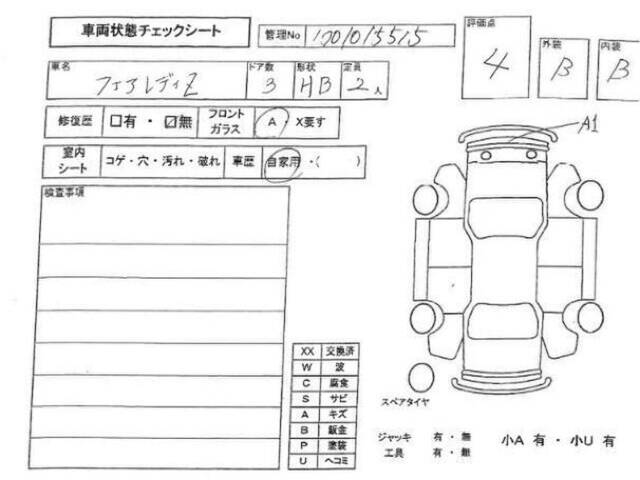 車両状態チェックシート
管理No 1701015515
評価点 4
外装 B
内装 B
車名 フェアレディZ
ドア数 3
形状 HB
定員 2人
修復歴 □有・☑無
フロントガラス A・X要す
室内シート コゲ・穴・汚れ・破れ
車歴 自家用・( )
検査事項
A1
XX 交換済
W 波
C 腐食
S サビ
A キズ
B 鈑金
P 塗装
U ヘコミ
スペアタイヤ
ジャッキ 有・無
工具 有・無
小A 有・小U 有